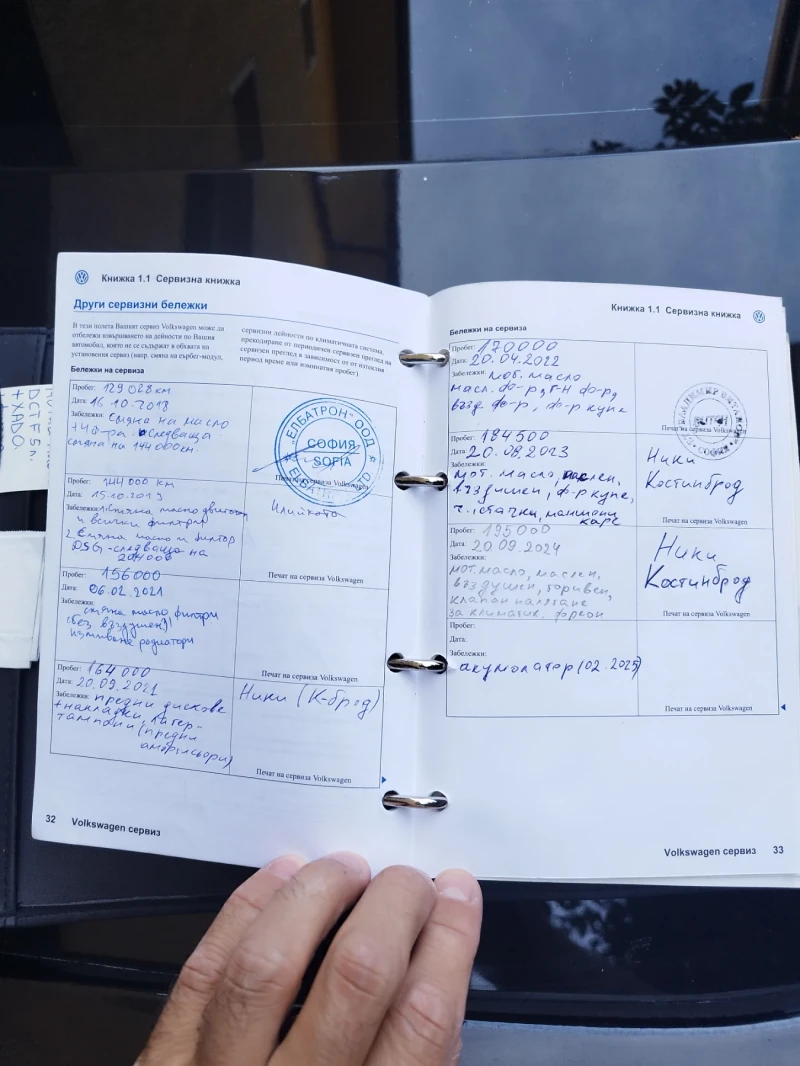 Книжка 1.1 Сервизна книжка
Други сервизни бележки
В тези полета Вашият сервиз Volkswagen може да
отбележи извършването на дейности по Вашия
автомобил, които не се съдържат в обхвата на
установения сервиз (напр. смяна на гърбет-модул,
сервизни дейности по климатичната система,
прекодиране от периодичен сервизен преглед на
сервизен преглед в зависимост от от изтеклия
период време или изминатия пробег).
Бележки на сервиза
Пробег: 129 028 км
Дата: 16.10.2018
Забележки: смяна на масло
следваща
смяна на 144 000 км.
"ЕЛБАТРОН" ООД
СОФИЯ
SOFIA
LTD
Печат на сервиза Volkswagen
Пробег: 144 000 км
Дата: 15.10.2019
Забележки: 1. Смяна масло двигател
и всички филтри
2. Смяна масло и филтър
DSG - следващо на
204 000
Илийката
Печат на сервиза Volkswagen
Пробег: 156000
Дата: 06.02.2021
Забележки: смяна масло филтри
(без въздушен)!
измиване радиатори
Печат на сервиза Volkswagen
Пробег: 164 000
Дата: 20.09.2021
Забележки: предни дискове
+ накладки, лагер-
тампони (предни
амортисьори)
Ники (К-брод)
Печат на сервиза Volkswagen
32 Volkswagen сервиз
Книжка 1.1 Сервизна книжка
Бележки на сервиза
Пробег: 170000
Дата: 20.04.2022
Забележки: мот. масло
масл. ф-р, ГН ф-р,
възд ф-р, ф-р купе
Печат на сервиза Volkswagen
Пробег: 184500
Дата: 20.08.2023
Забележки:
мот. масло, маслен,
въздушен, ф-р купе,
маншони
каре
Ники
Костинброд
Печат на сервиза Volkswagen
Пробег: 195000
Дата: 20.09.2024
Забележки:
мот. масло, маслен,
въздушен, горивен,
клапан налягане
за климатик, фреон
Ники
Костинброд
Печат на сервиза Volkswagen
Пробег:
Дата:
Забележки:
акумолатор (02.2025)
Печат на сервиза Volkswagen
Volkswagen сервиз 33